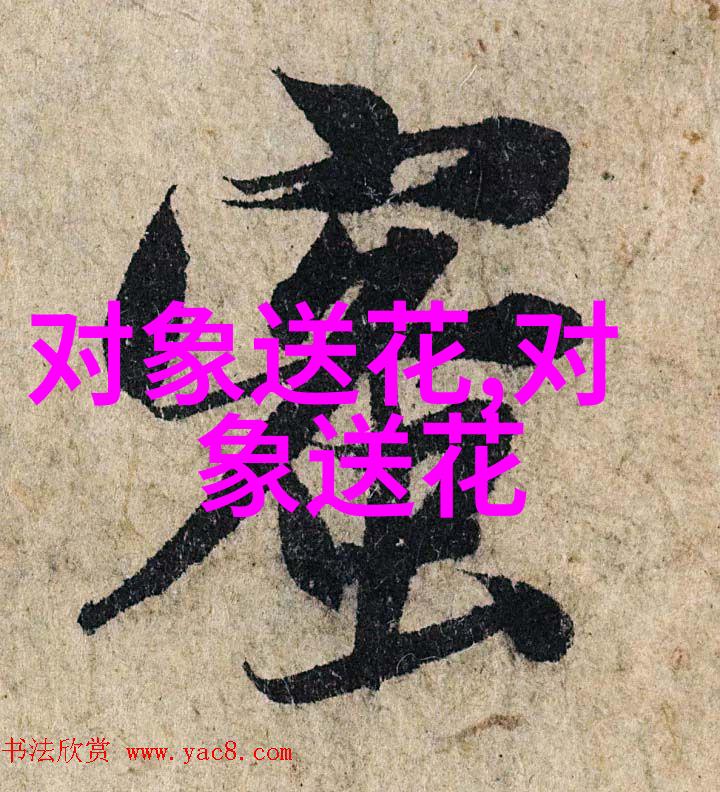 对象送花,对
象送花
书法欣赏 www.yac8.com